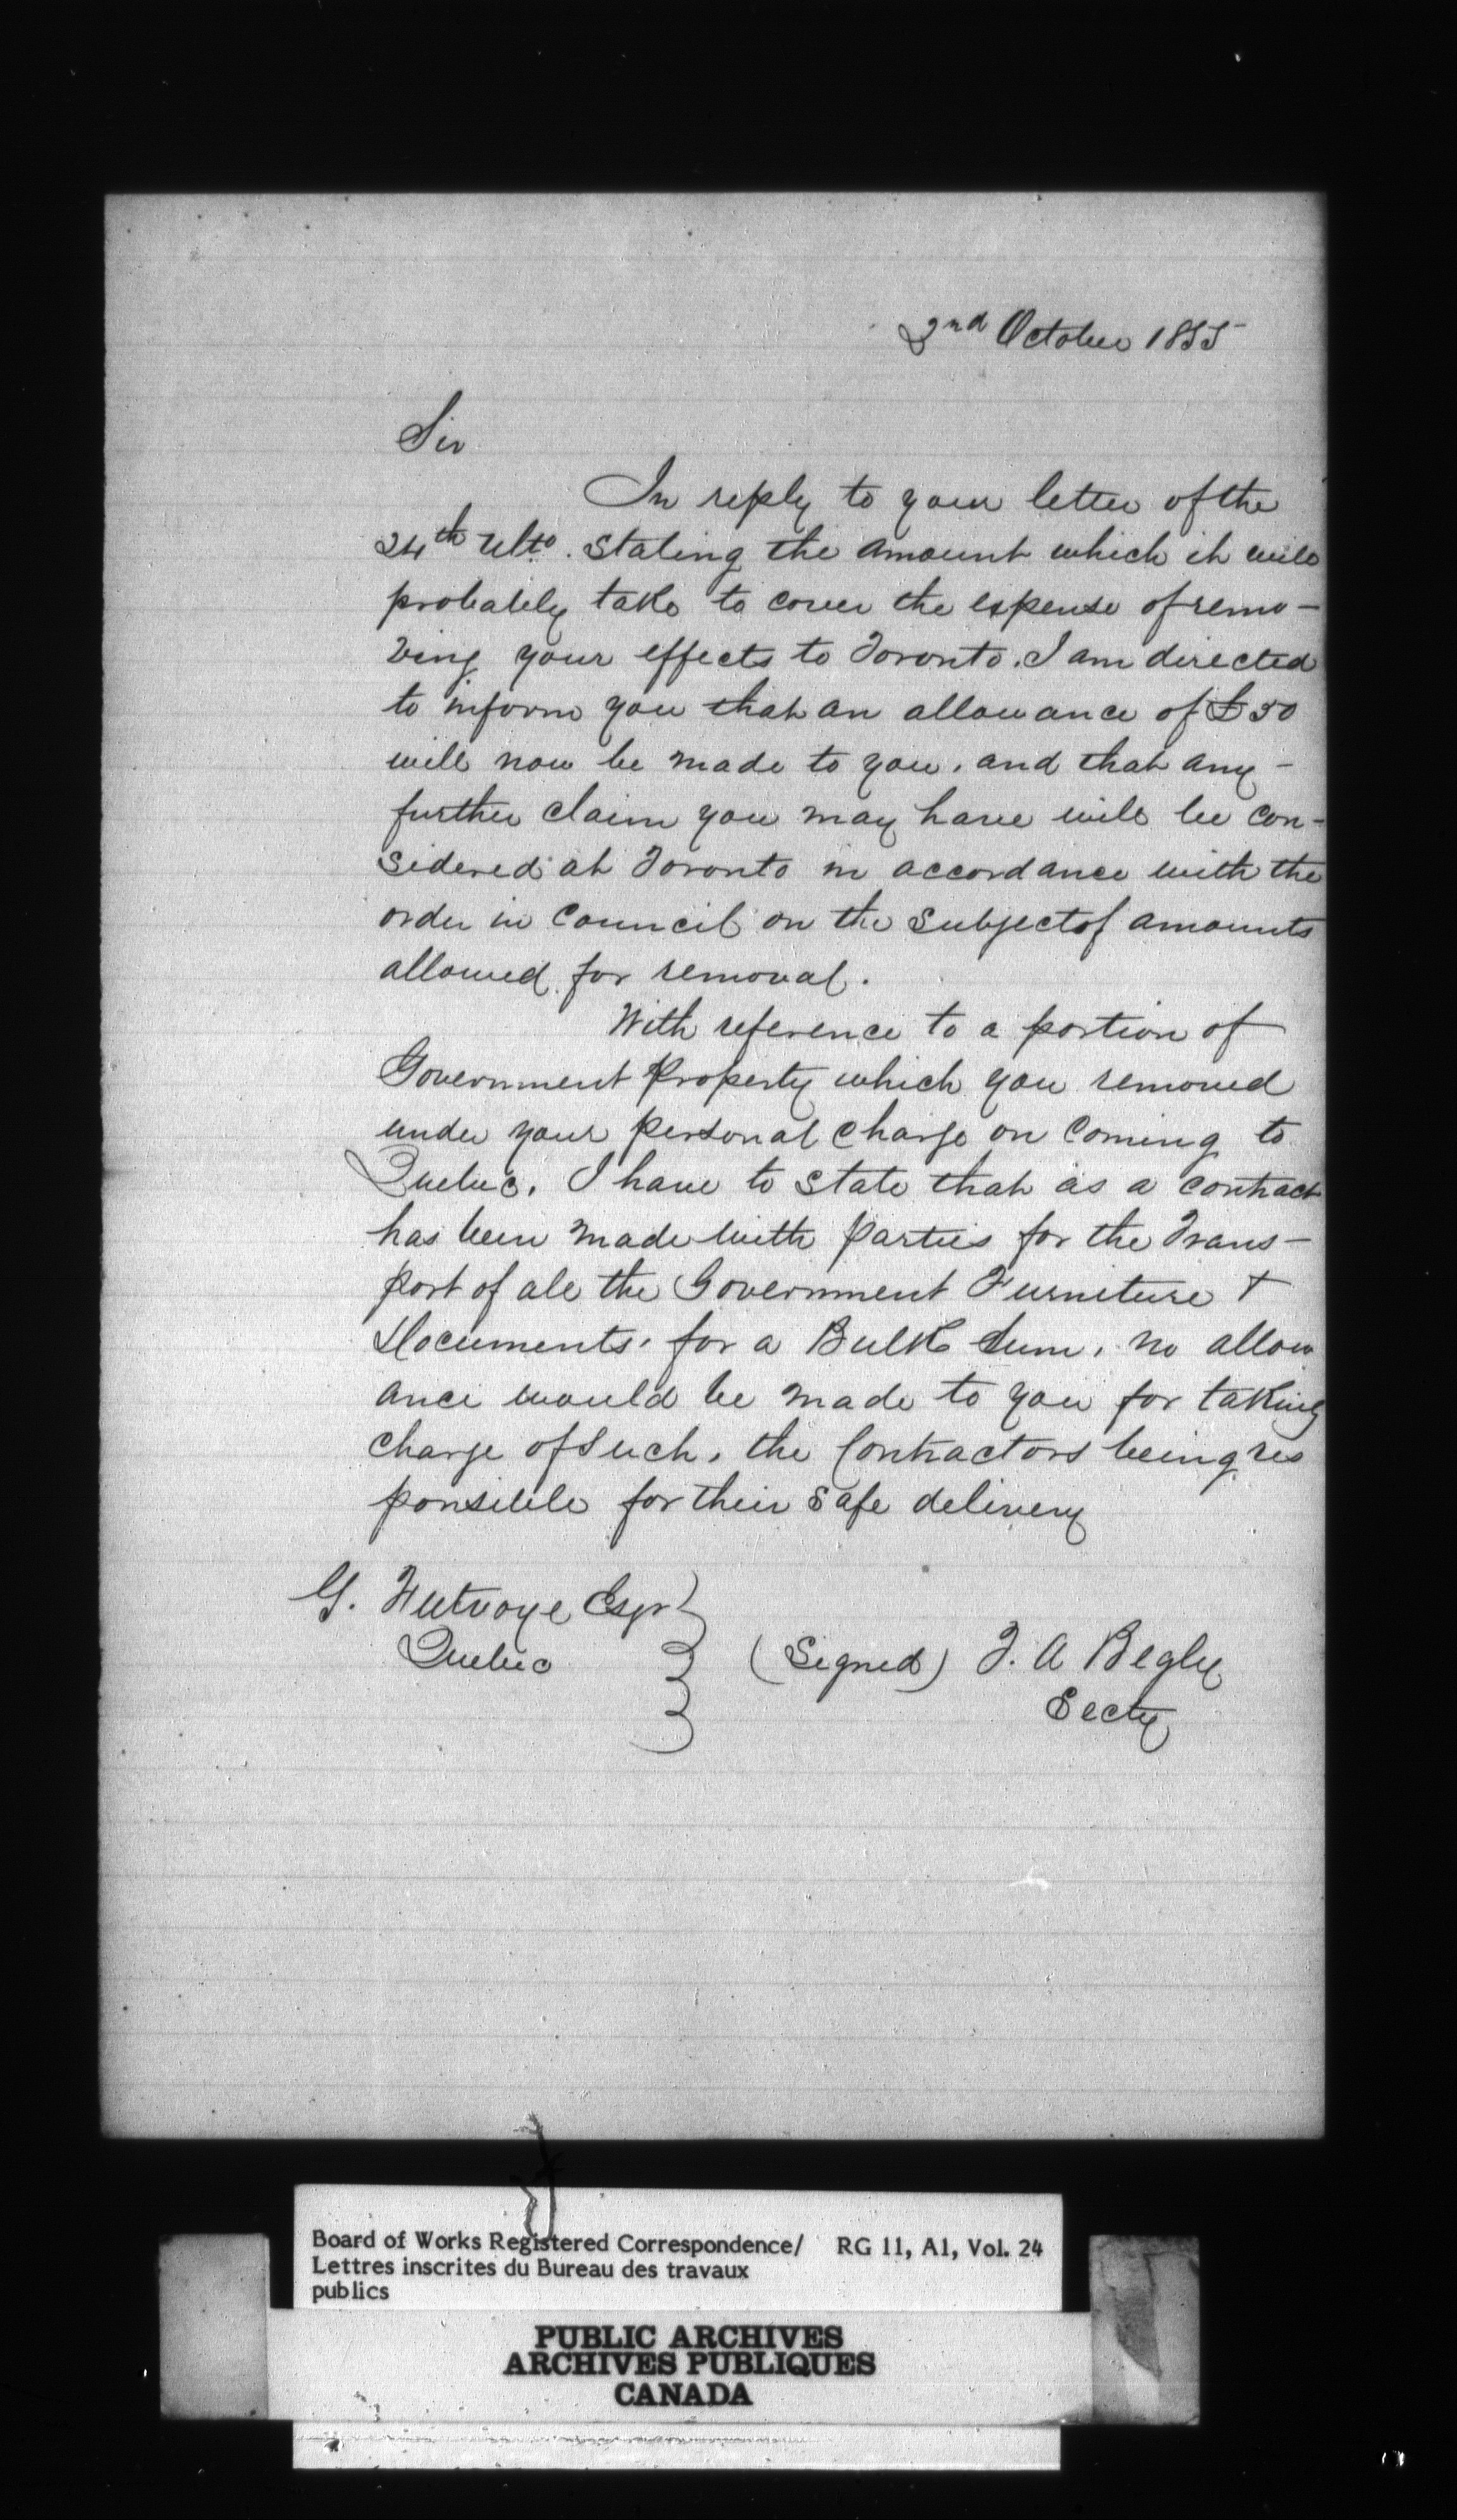 2nd October 1855
Sir
In reply to your letter of the
24th Ulto. stating the amount which it will
probably take to cover the expense of remo-
ving your effects to Toronto. I am directed
to inform you that an allowance of £50
will now be made to you, and that any-
further claim you may have will be con-
sidered at Toronto in accordance with the
order in Council on the subject of amounts
allowed for removal.
With reference to a portion of
Government Property which you removed
under your personal charge on Coming to
Quebec, I have to state that as a contract
has been made with parties for the Trans-
port of all the Government Furniture +
Documents, for a Bulk Sum, no allow
ance would be made to you for taking
charge of such, the Contractors being res
ponsible for their safe delivery
G. Futvoye Esqr
Quebec
(Signed) T. A Begly
Secty
Board of Works Registered Correspondence/ RG 11, A1, Vol. 24
Lettres inscrites du Bureau des travaux
publics
PUBLIC ARCHIVES
ARCHIVES PUBLIQUES
CANADA